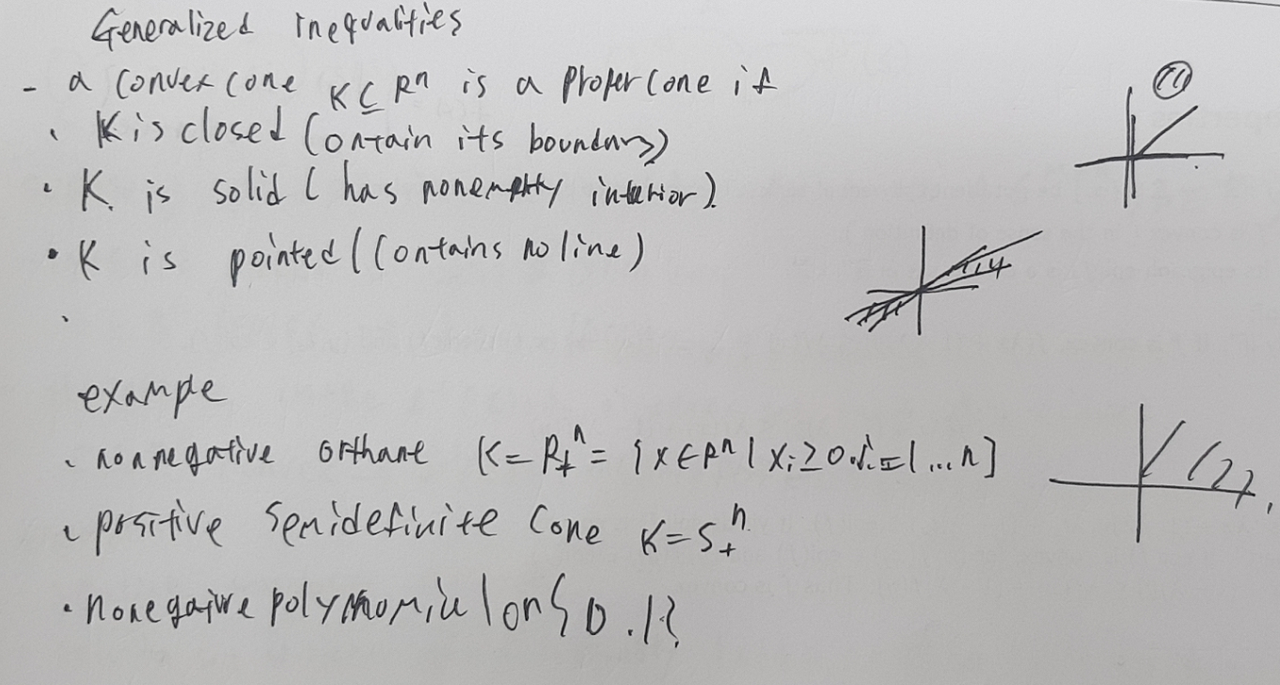 Generalized inequalities
- a convex cone K ⊆ Rⁿ is a proper cone if
• K is closed (contain its boundary)
• K is solid (has nonempty interior).
• K is pointed (contains no line)
example
• nonnegative orthant K = R₊ⁿ = {x ∈ Rⁿ | xᵢ ≥ 0. i = 1 ... n]
• positive semidefinite cone K = S₊ⁿ
• nonegaive polynomial on { 0 . 1 }